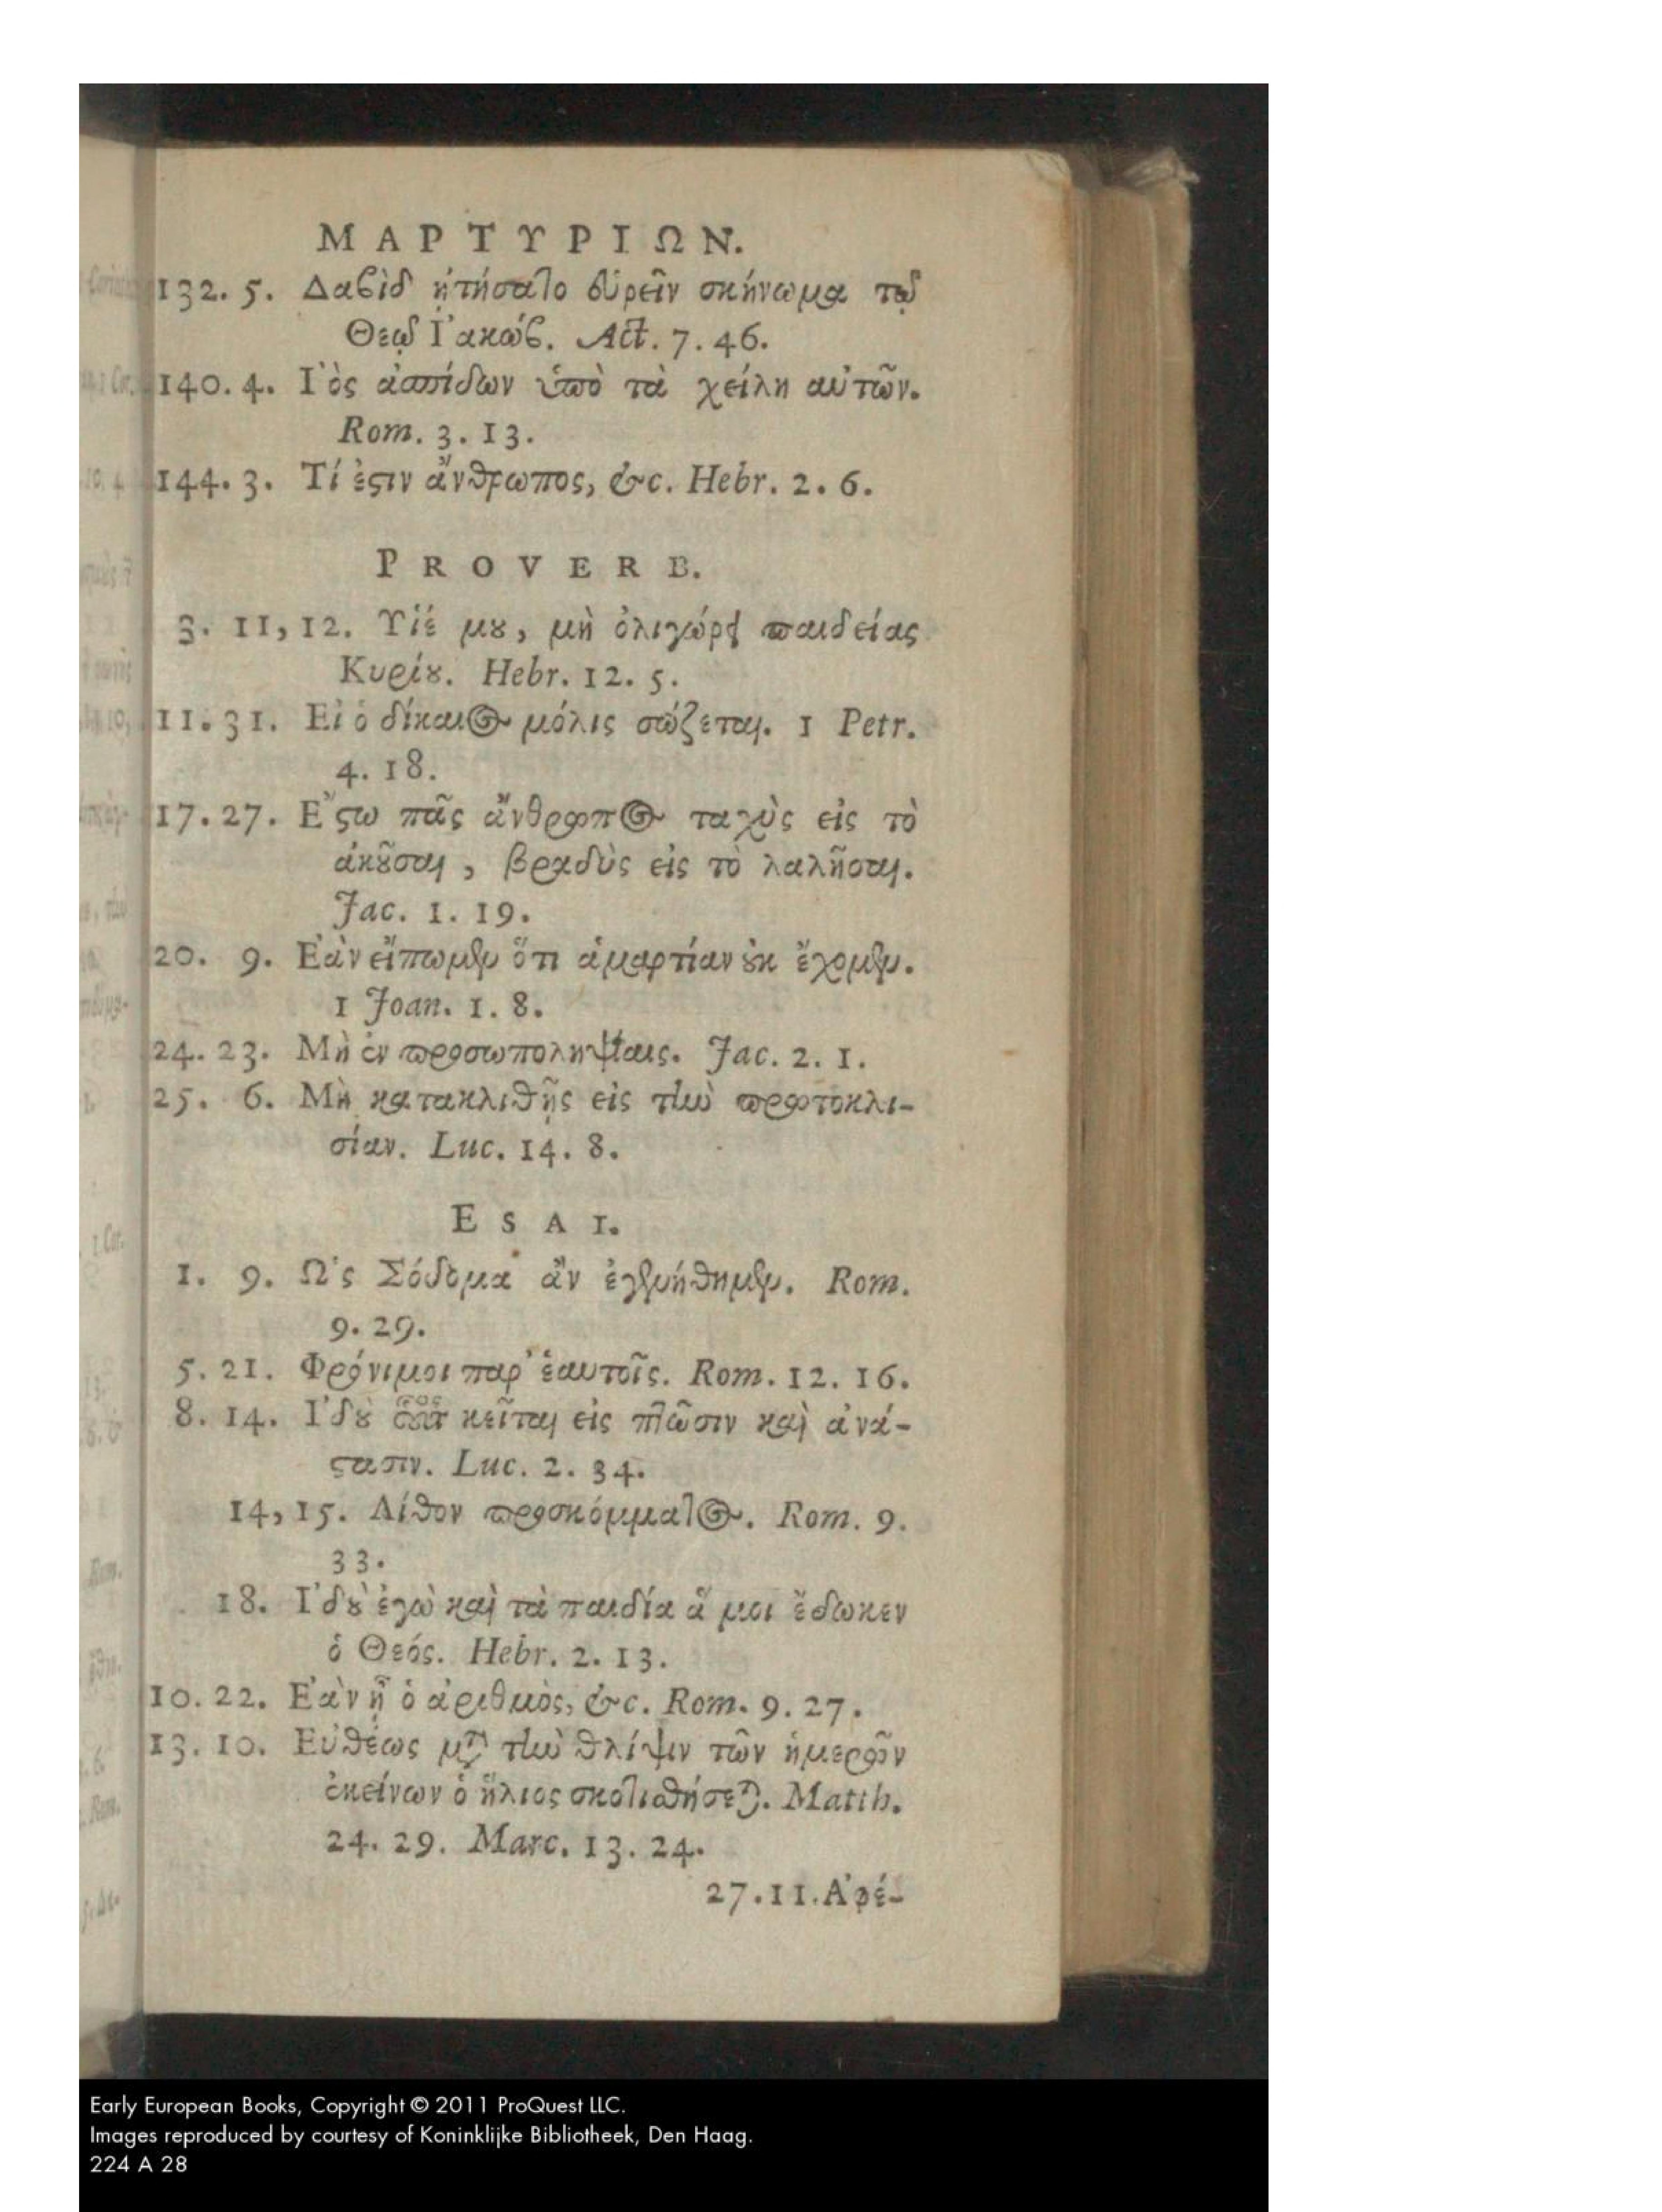 ΜΑΡΤΥΡΙΩΝ.
132. 5. Δαβὶδ ᾐτήσατο εὑρεῖν σκήνωμα τῷ
Θεῷ Ἰακώβ. Act. 7. 46.
140. 4. Ἰὸς ἀσπίδων ὑπὸ τὰ χείλη αὐτῶν.
Rom. 3. 13.
144. 3. Τί ἐστιν ἄνθρωπος, &c. Hebr. 2. 6.
PROVERB.
3. 11, 12. Υἱέ μου, μὴ ὀλιγώρει παιδείας
Κυρίου. Hebr. 12. 5.
11. 31. Εἰ ὁ δίκαιος μόλις σώζεται. 1 Petr.
4. 18.
17. 27. Ἔστω πᾶς ἄνθρωπος ταχὺς εἰς τὸ
ἀκοῦσαι, βραδὺς εἰς τὸ λαλῆσαι.
Jac. 1. 19.
20. 9. Ἐὰν εἴπωμεν ὅτι ἁμαρτίαν οὐκ ἔχομεν.
1 Joan. 1. 8.
24. 23. Μὴ ἐν προσωποληψίαις. Jac. 2. 1.
25. 6. Μὴ κατακλιθῇς εἰς τὴν πρωτοκλι-
σίαν. Luc. 14. 8.
ESAI.
1. 9. Ὡς Σόδομα ἂν ἐγενήθημεν. Rom.
9. 29.
5. 21. Φρόνιμοι παρ' ἑαυτοῖς. Rom. 12. 16.
8. 14. Ἰδοὺ οὗτος κεῖται εἰς πτῶσιν καὶ ἀνά-
στασιν. Luc. 2. 34.
14, 15. Λίθον προσκόμματος. Rom. 9.
33.
18. Ἰδοὺ ἐγὼ καὶ τὰ παιδία ἅ μοι ἔδωκεν
ὁ Θεός. Hebr. 2. 13.
10. 22. Ἐὰν ᾖ ὁ ἀριθμὸς, &c. Rom. 9. 27.
13. 10. Εὐθέως μετὰ τὴν θλίψιν τῶν ἡμερῶν
ἐκείνων ὁ ἥλιος σκοτισθήσεται. Matth.
24. 29. Marc. 13. 24.
27. 11. Ἀφέ-
Early European Books, Copyright © 2011 ProQuest LLC.
Images reproduced by courtesy of Koninklijke Bibliotheek, Den Haag.
224 A 28